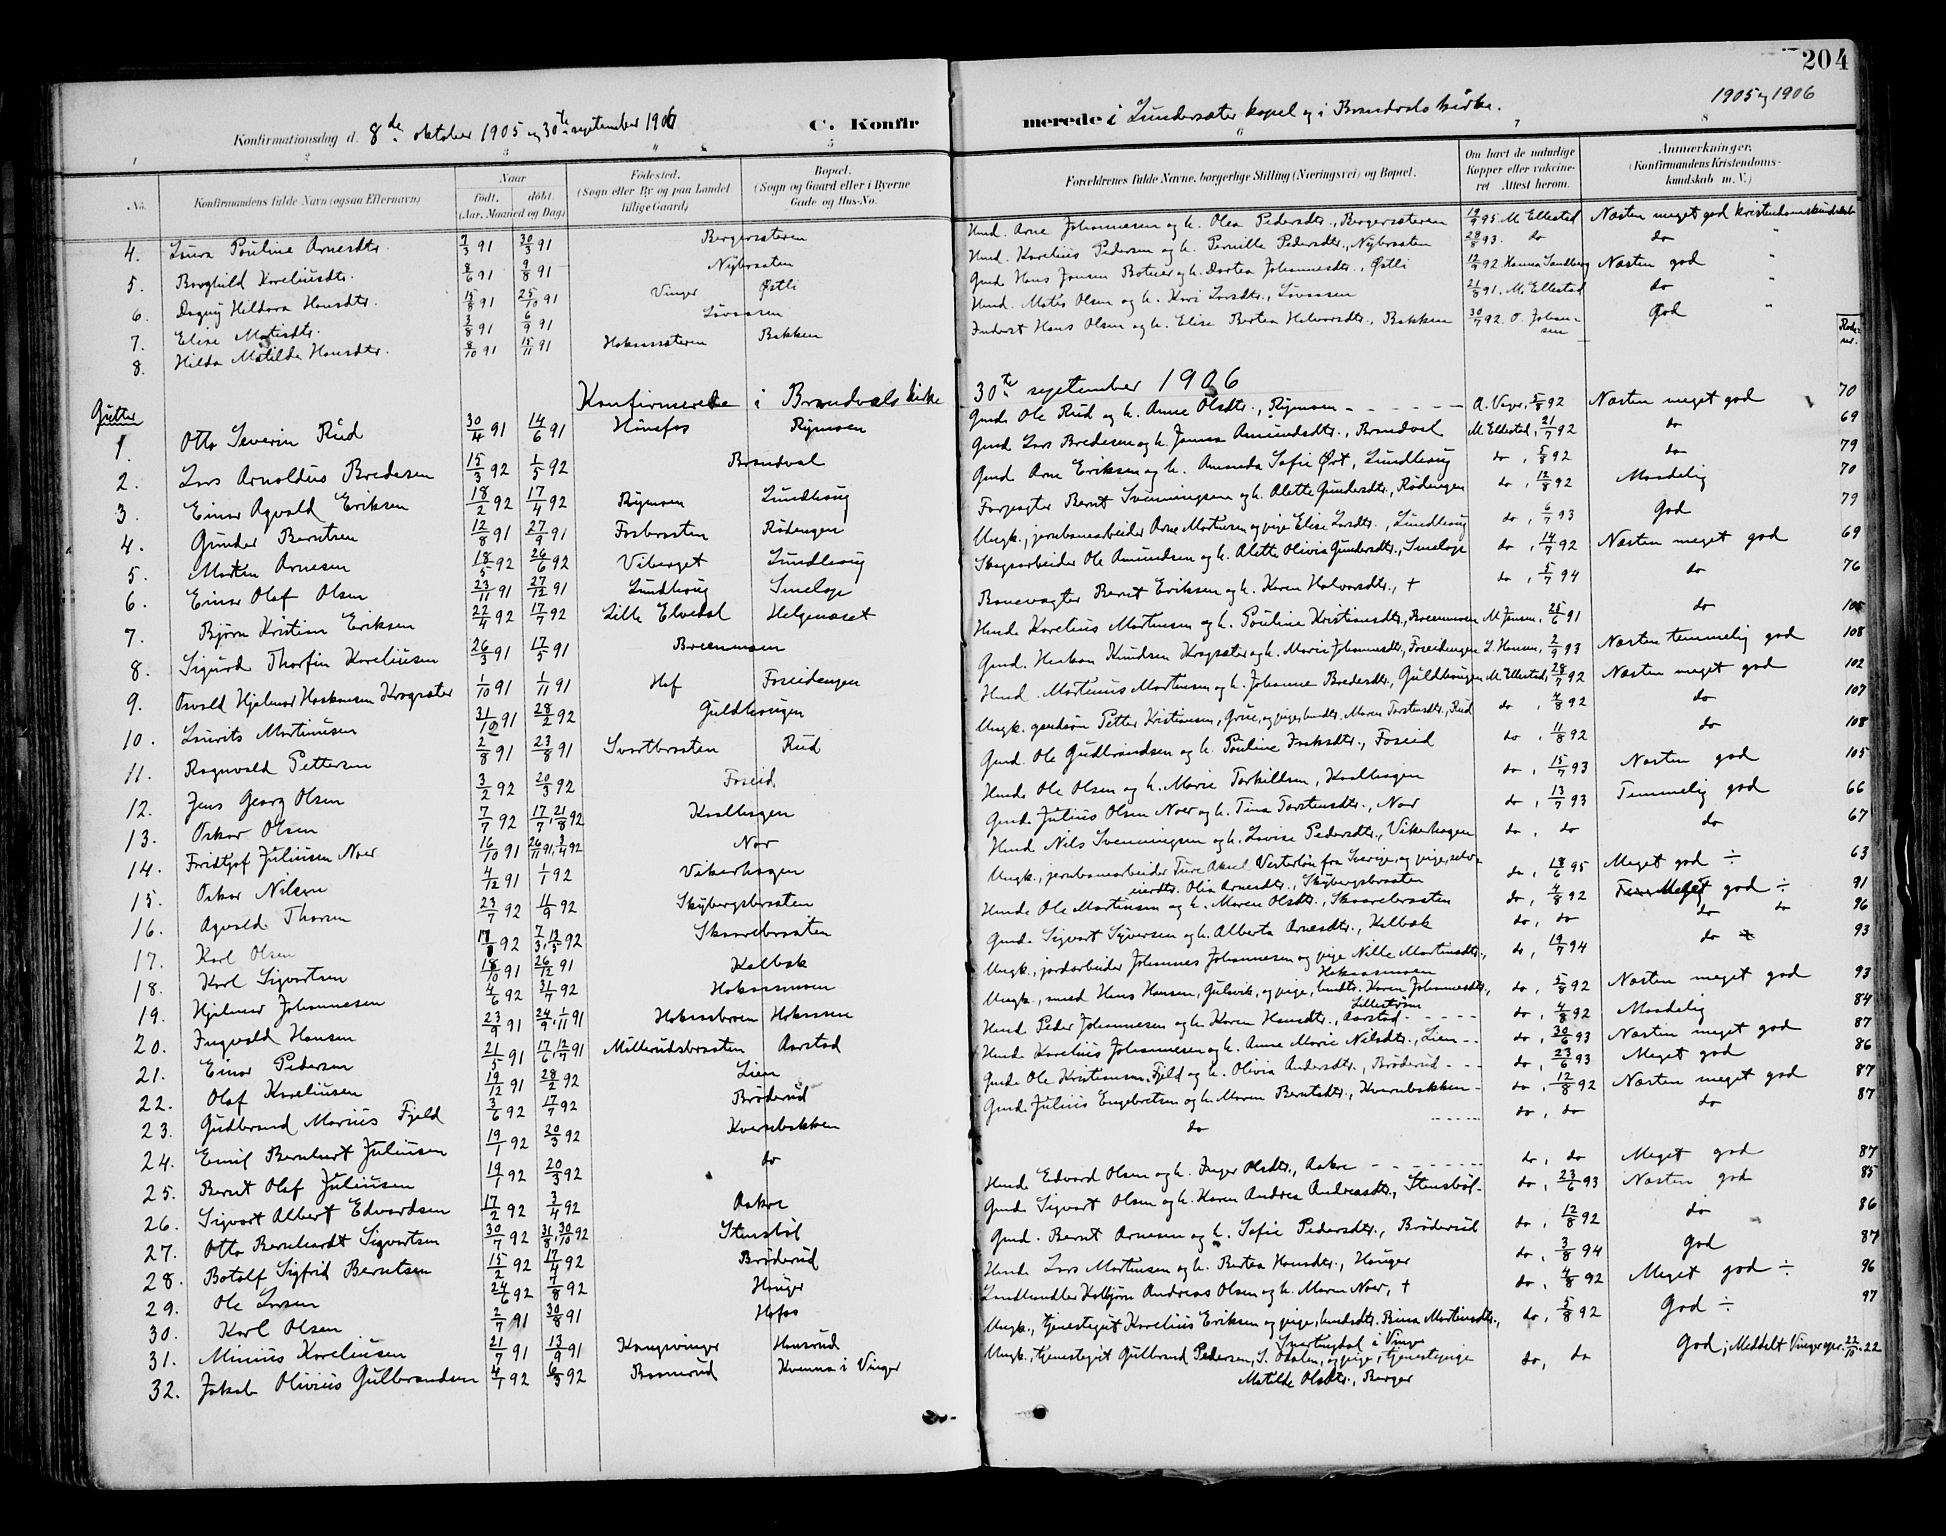 204
1905 og 1906
Konfirmationsdag d. 8de oktober 1905 og 30te september 1906 C. Konfirmerede i Lundersæter kapel og i Brandvals kirke.
1 2 3 4 5 6 7 8
No. Konfirmandens fulde Navn (ogsaa Efternavn) Naar født. døbt. (Aar, Maaned og Dag) Fødested. (Sogn eller By og paa Landet tillige Gaard) Bopæl. (Sogn og Gaard eller i Byerne Gade og Hus-No. Forældrenes fulde Navne, borgerlige Stilling (Næringsvei) og Bopæl. Om havt de naturlige Kopper eller vakcineret Attest herom. Anmærkninger. (Konfirmandens Kristendomskundskab m. V.)
4. Laura Pauline Arnesdtr. 7/3 91 30/3 91 Bergersæteren Husd. Arne Johannesen og h. Olea Pedersdtr., Bergersæteren 19/9 95 M. Ellestad Næsten meget god kristendomskundskab
5. Borghild Koreliusdtr. 8/6 91 9/8 91 Nybraaten Husd. Korelius Pedersen og h. Pernille Pedersdtr., Nybraaten 28/8 93. do do "
6. Dagny Hildora Hansdtr. 15/8 91 25/10 91 Vinger Østli Gmd Hans Jansen Boteier og h. Dortea Johannesdtr., Østli 12/9 92. Hanna Sandberg Næsten god "
7. Elise Matisdtr. 3/8 91 6/9 91 Løvaasen Husd. Matis Olsen og h. Kari Larsdtr., Løvaasen 21/8 91. M. Ellestad do "
8. Hilda Matilde Hansdtr. 8/10 91 15/11 91 Hokaassæteren Bakken Inderst Hans Olsen og h. Elise Bertea Halvorsdtr., Bakken 30/7 92. O. Johansen God "
Rode nr.
Konfirmerede i Brandvals kirke 30te september 1906
Gutter
1. Otto Severin Rud 30/4 91 14/6 91 Hønefos Rymoen Gmd. Ole Rud og h. Anne Olsdtr., Rymoen A. Viger, 5/8 92 Næsten meget god 70
2. Lars Arnoldus Bredesen 15/3 92 1/5 92 Brandval Gmd Lars Bredesen og h. Janna Amundsdtr., Brandval M. Ellestad, 21/7 92 do 69
3. Einar Agvald Eriksen 18/2 92 17/4 92 Rymoen Lundhoug Gmd Arne Eriksen og h. Amanda Sofie Ørt, Lundhoug do, 5/8 92 do 79
4. Gunder Berntsen 12/8 91 27/9 91 Fosbraaten Rødengen Forpagter Bernt Svenningsen og h. Alette Gundersdtr., Rødengen do, 12/8 92 Maadelig 70
5. Morten Arnesen 18/5 92 26/6 92 Viberget Lundhoug Ungk., jernbanearbeider Arne Martinsen og pige Elise Larsdtr., Lundhoug do, 6/7 93 God 79
6. Einar Olaf Olsen 23/11 91 27/12 91 Lundhoug Smeløpe Skogsarbeider Ole Amundsen og h. Alette Olivia Gundersdtr., Smeløpe do, 14/7 92 Næsten meget god 69
7. Bjørn Kristian Eriksen 22/4 92 17/7 92 Lille Elvedal Helgenæset Banevogter Bernt Eriksen og h. Karen Halvorsdtr., † do, 5/7 94 do 76
8. Sigurd Thorfin Koreliusen 26/3 91 17/5 91 Breenmoen Husd. Korelius Martinsen og h. Pauline Kristiansdtr., Breenmoen M. Jensen, 25/6 91 do 105
9. Osvald Hjelmar Haakonsen Kragsæter 1/10 91 1/11 91 Hof Foseidengen Gmd. Haakon Knudsen Kragsæter og h. Marie Johannesdtr., Foseidengen L. Hansen, 2/9 93 Næsten temmelig god 108
10. Laurits Martinusen 31/10 91 28/2 92 Guldhaugen Husd. Martinus Martinsen og h. Johanne Bredesdtr., Guldhaugen M. Ellestad, 28/7 92 Næsten meget god 102
11. Ragnvald Pettersen 2/8 91 23/8 91 Svartbraaten Rud Ungk. gmdsøn Petter Kristiansen, Grue, og pige, husdtr. Maren Torstensdtr., Rud do, 4/8 92 do 107
12. Jens Georg Olsen 3/2 92 20/3 92 Foseid Gmd. Ole Gudbrandsen og h. Pauline Isaksdtr., Foseid do, 11/8 92 do 108
13. Oskar Olsen 7/7 92 17/7, 21/8 92 Kaalhagen Husd. Ole Olsen og h. Marie Torkildsen, Kaalhagen do, 15/7 93 Næsten god 105
14. Fridtjof Juliusen Noer 16/10 91 26/11 91, 3/4 92 Nor Gmd. Julius Olsen Noer og h. Tina Torstensdtr., Nor do, 13/7 93 Temmelig god 66
15. Oskar Nilsen 4/12 91 1/1 92 Vikerhagen Husd Nils Svenningsen og h. Lovise Pedersdtr., Vikerhagen do, do do 67
16. Agvald Thoresen 23/7 92 11/9 92 Skybergsbraaten Ungk., jernbanearbeider Ture Aksel Vesterlön fra Sverige, og pige, selveierdtr. Olia Arnesdtr., Skybergsbraaten do, 18/6 95 Meget god ÷ 63
17. Karl Olsen 17/1 92 7/3, 13/5 92 Skaarebraaten Husd. Ole Martinsen og h. Maren Olsdtr., Skaarebraaten do, 4/8 92 Meget god ÷ 91
18. Karl Sigvartsen 18/10 91 26/12 91 Kalbak Gmd. Sigvart Syversen og h. Alberta Arnesdtr., Kalbak do, do do do 96
19. Hjelmar Johannesen 4/6 92 31/7 92 Hokaasmoen Ungk., jordarbeider Johannes Johannesen og pige Nille Martinsdtr., Hokaasmoen do, 19/7 94 do 93
20. Ingvald Hansen 23/9 91 24/9, 1/11 91 Hokaasbroen Hokaasen Ungk., smed Hans Hansen, Gulsvik, og pige, husdtr. Karen Johannesdtr., Lillestrøm do, 5/8 92 Næsten meget god 93
21. Einar Pedersen 21/5 91 17/6, 12/7 91 Møllerudsbraaten Aarstad Husd Peder Johannesen og h. Karen Hansdtr., Aarstad do, 4/8 92 Maadelig 84
22. Olaf Koreliusen 19/12 91 28/2 92 Lien Husd. Korelius Johannesen og h. Anne Marie Nilsdtr., Lien do, 30/6 93 Næsten meget god 87
23. Gudbrand Marius Fjeld 3/6 92 17/7 92 Brøderud Gmd. Ole Kristiansen Fjeld og h. Olivia Andersdtr., Brøderud do, 23/6 93 Meget god 86
24. Emil Bernhart Juliusen 19/1 92 20/3 92 Kvernbakken Gmd. Julius Engebretsen og h. Maren Berntsdtr., Kvernbakken do, 12/8 92 Næsten meget god 87
25. Bernt Olaf Juliusen 19/1 92 20/3 92 do do do, do do 87
26. Sigvart Albert Edvardsen 17/2 92 3/4 92 Aakre Husd. Edvard Olsen og h. Inger Olsdtr., Aakre do, do Meget god 87
27. Otto Bernhardt Sigvartsen 30/7 92 31/8, 30/10 92 Stensbøl Gmd. Sigvart Olsen og h. Karen Andrea Andreasdtr., Stensbøl do, 23/6 93 Næsten god 85
28. Botolf Sigfrid Berntsen 15/2 92 17/4 92 Brøderud Gmd. Bernt Arnesen og h. Sofie Pedersdtr., Brøderud do, 12/8 92 do 86
29. Ole Larsen 24/6 92 7/8 92 Hanger Husd. Lars Martinsen og h. Bertea Hansdtr., Hanger do, 3/8 94 God 87
30. Karl Olsen 2/7 91 30/8 91 Hofos Landhandler Kolbjørn Andreas Olsen og h. Maren Noer, † do, 4/8 92 Meget god ÷ 96
31. Minius Koreliusen 21/7 91 13/9 91 Kongsvinger Hansrud Ungk., tjenestegut Korelius Eriksen og pige, husdtr. Rina Martinsdtr., Svartingdal i Vinger do, 5/8 92 God ÷ 97
32. Jakob Olivius Gulbrandsen 4/1 92 6/3 92 Baanerud Kvenna i Vinger Ungk., tjenestegut Gulbrand Pedersen, S. Odalen, og pige, tjenestepige Matilde Olsdtr., Berger do, do God; Meddelt Vinger spr. 22/10 22